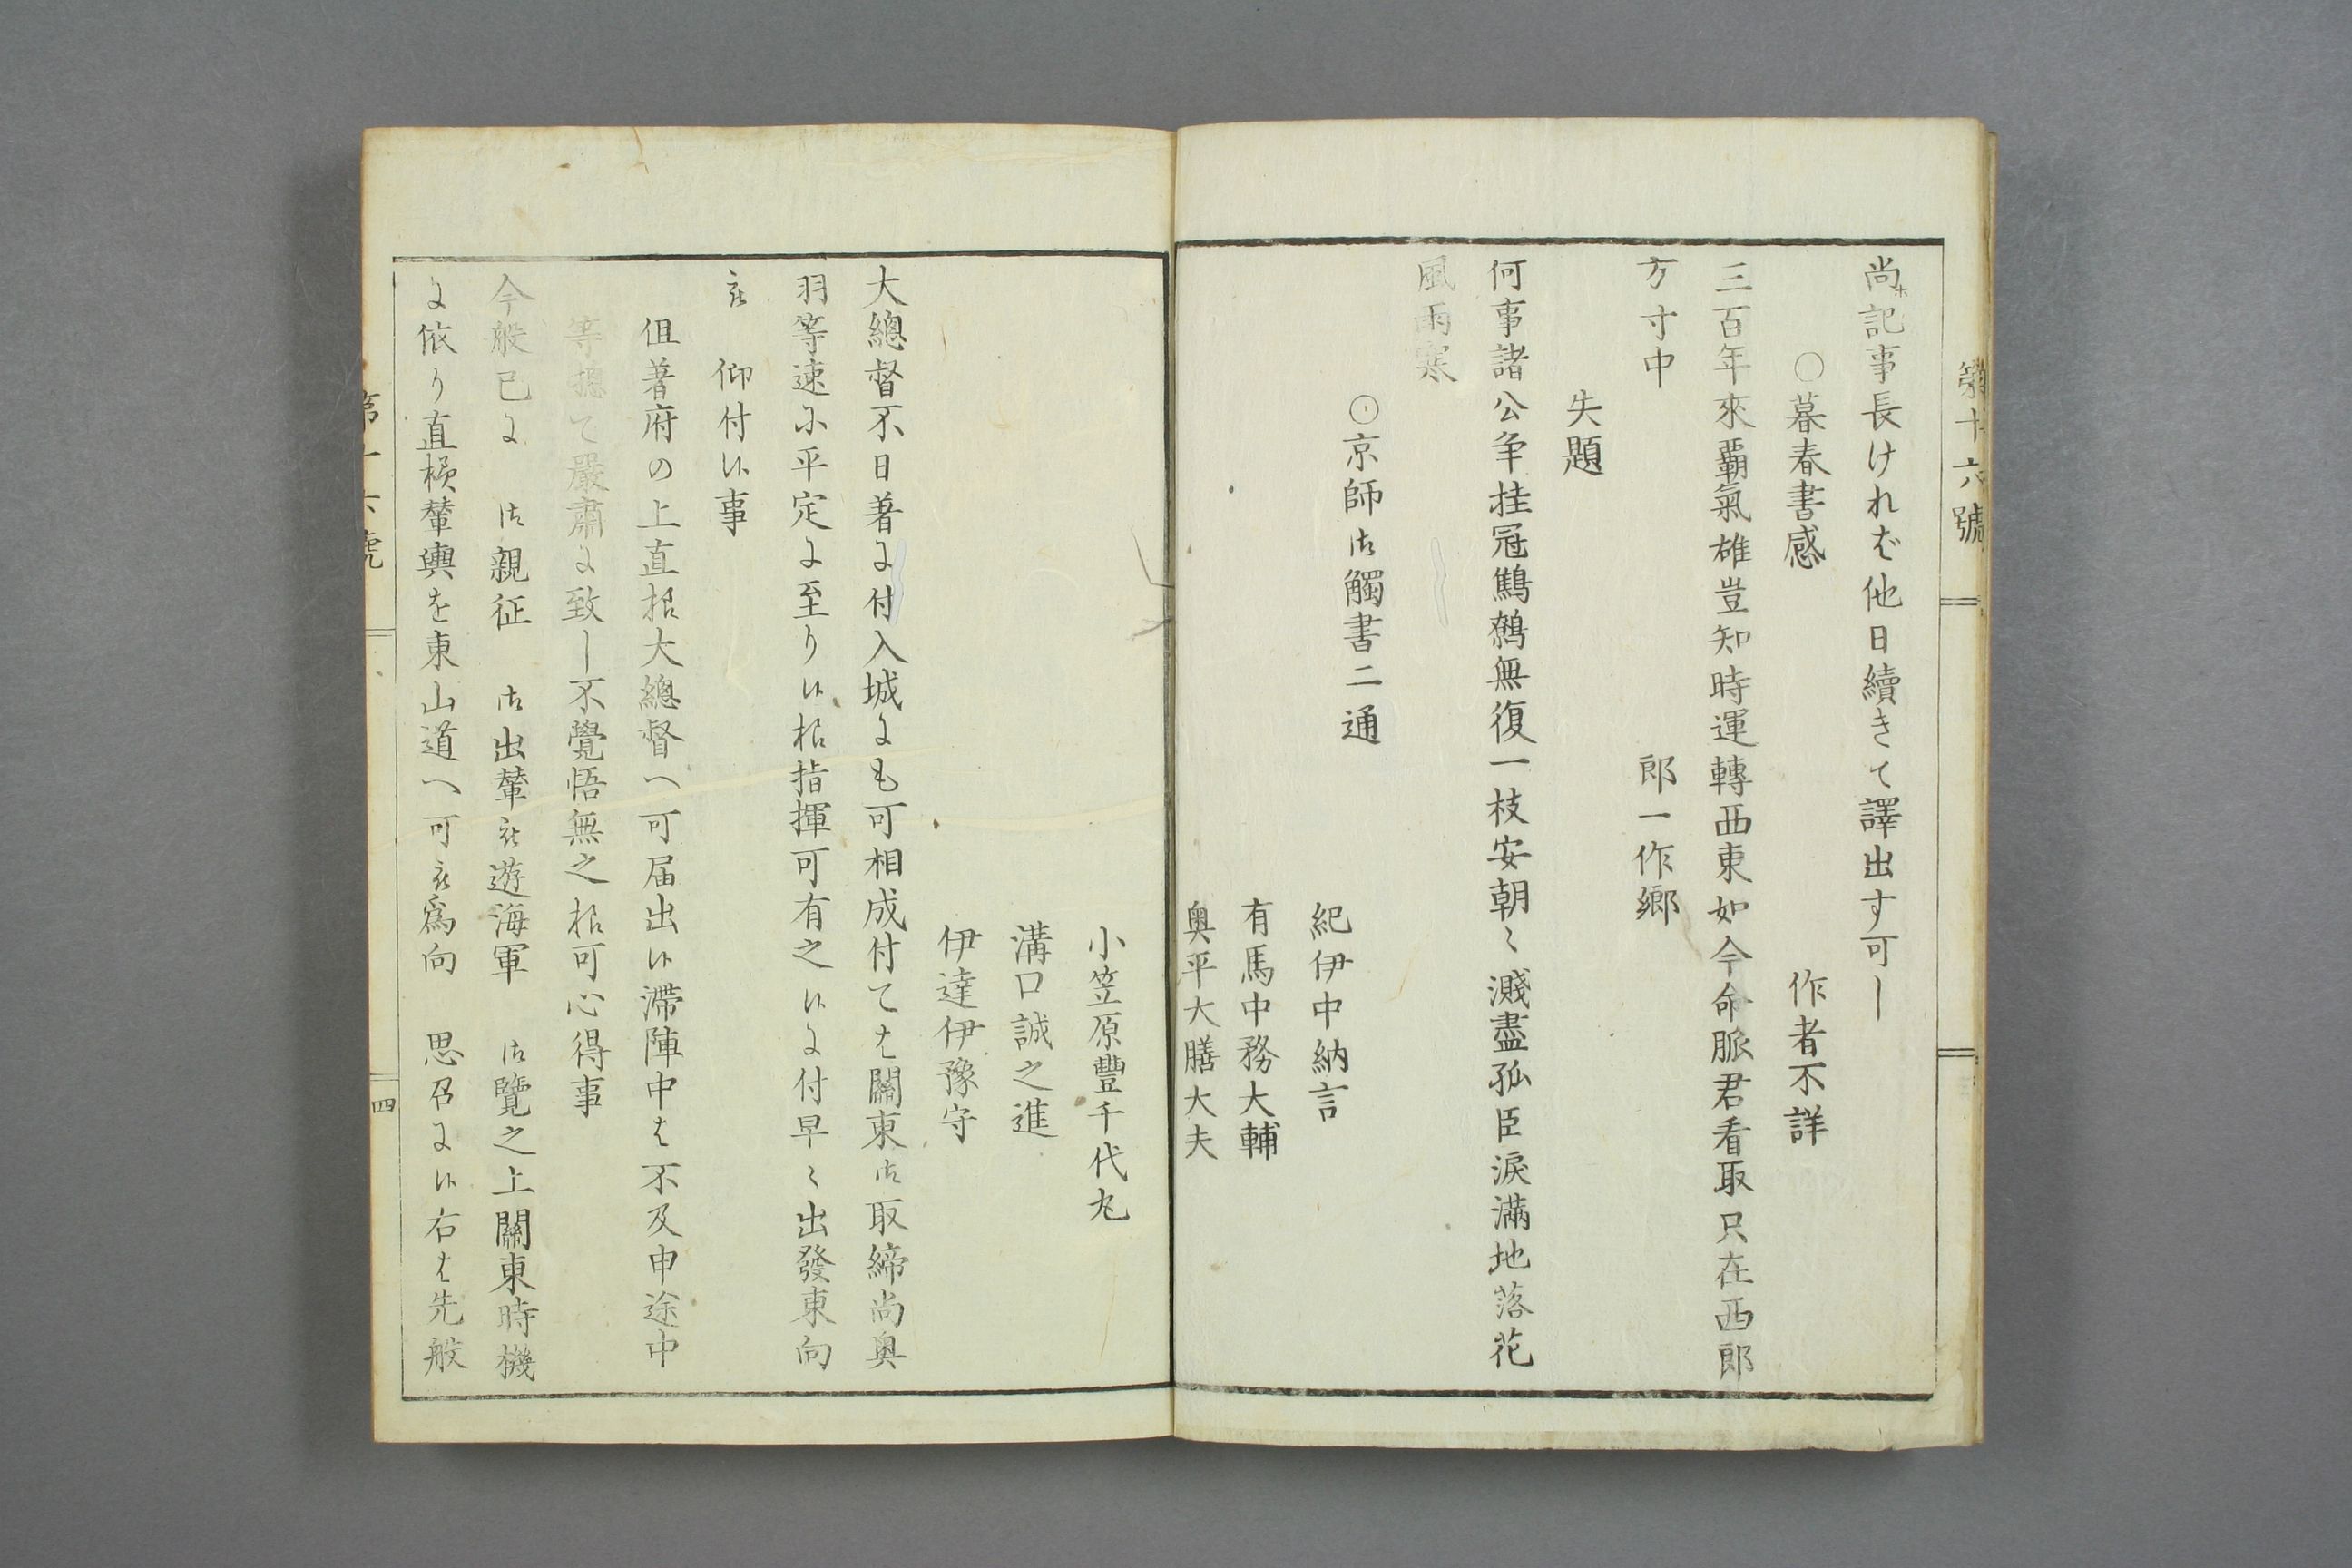 第十六號
尚ホ記事長けれバ他日續きて譯出す可し
○暮春書感
作者不詳
三百年來覇氣雄豈知時運轉西東如今命脈君看取只在西郎
方寸中
郎一作鄉
失題
何事諸公争挂冠鷦鷯無復一枝安朝〻濺盡孤臣淚滿地落花
風雨寒
○京師御觸書二通
紀伊中納言
有馬中務大輔
奥平大膳大夫
小笠原豐千代丸
溝口誠之進
伊達伊豫守
大總督不日著に付入城にも可相成付てハ關東御取締尚奥
羽等速に平定に至り候樣指揮可有之候に付早〻出發東向
被　仰付候事
但著府の上直樣大總督へ可届出候滯陣中ハ不及申途中
等總て嚴肅に致し不覺悟無之樣可心得事
今般已に　御親征　御出輦被遊海軍　御覽之上關東時機
に依り直樣輦輿を東山道へ可被爲向　思召に候右ハ先般
第十六號
四